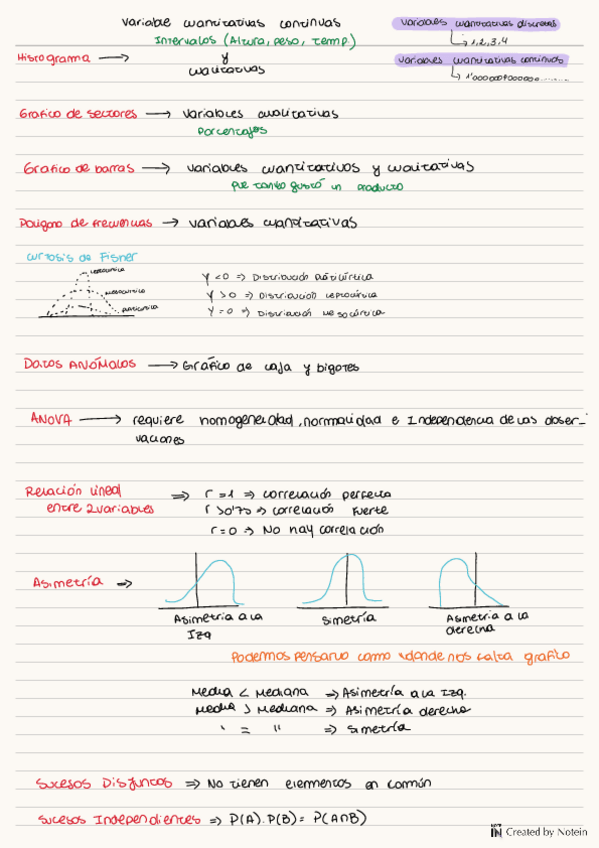 Variable cuantitativas continuas
Intervalos (Altura, peso, temp.)
Histograma → y
cualitativas
Variables cuantitativas discretas
1,2,3,4
Variables cuantitativas continuas
Gráfico de sectores → variables cualitativas
Porcentajes
Gráfico de barras → variables cuantitativas y cualitativas
que tanto gustó un producto
Polígono de frecuencias → variables cuantitativas
Curtosis de Fisher
Leptocúrtica
Mesocúrtica
Platicúrtica
γ < 0 => Distribución platicúrtica
γ > 0 => Distribución leptocúrtica
γ = 0 => Distribución mesocúrtica
Datos ANÓMALOS → Gráfico de caja y bigotes
ANOVA → requiere homogeneidad, normalidad e Independencia de las obser-
vaciones
Relación lineal
entre 2 variables
=> r = 1 => correlación perfecta
r > 0'70 => correlación fuerte
r = 0 => No hay correlación
Asimetría =>
Asimetría a la
Izq
Simetría
Asimetría a la
derecha
Podemos pensarlo como donde nos falta gráfico
Media < Mediana => Asimetría a la Izq.
Media > Mediana => Asimetría derecha
" = " => Simetría
Sucesos Disjuntos => No tienen elementos en común
Sucesos Independientes => P(A).P(B) = P(A∩B)
Created by Notein